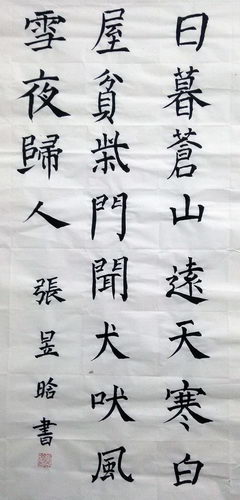 日暮蒼山遠天寒白
屋貧柴門聞犬吠風
雪夜歸人
張昱晗書